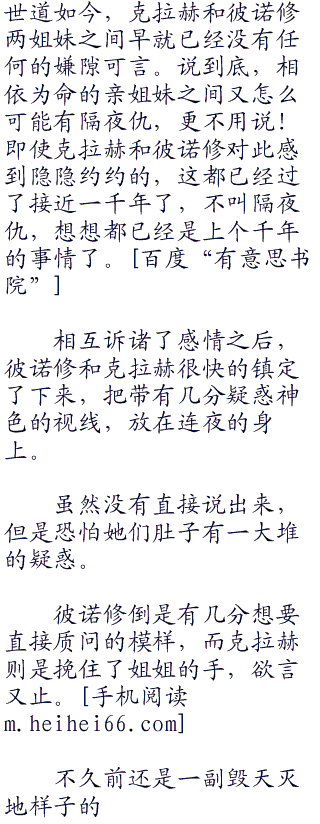 世道如今，克拉赫和彼诺修
两姐妹之间早就已经没有任
何的嫌隙可言。说到底，相
依为命的亲姐妹之间又怎么
可能有隔夜仇，更不用说！
即使克拉赫和彼诺修对此感
到隐隐约约的，这都已经过
了接近一千年了，不叫隔夜
仇，想想都已经是上个千年
的事情了。[百度“有意思书
院”]
相互诉诸了感情之后，
彼诺修和克拉赫很快的镇定
了下来，把带有几分疑惑神
色的视线，放在连夜的身
上。
虽然没有直接说出来，
但是恐怕她们肚子有一大堆
的疑惑。
彼诺修倒是有几分想要
直接质问的模样，而克拉赫
则是挽住了姐姐的手，欲言
又止。[手机阅读
m.heihei66.com]
不久前还是一副毁天灭
地样子的